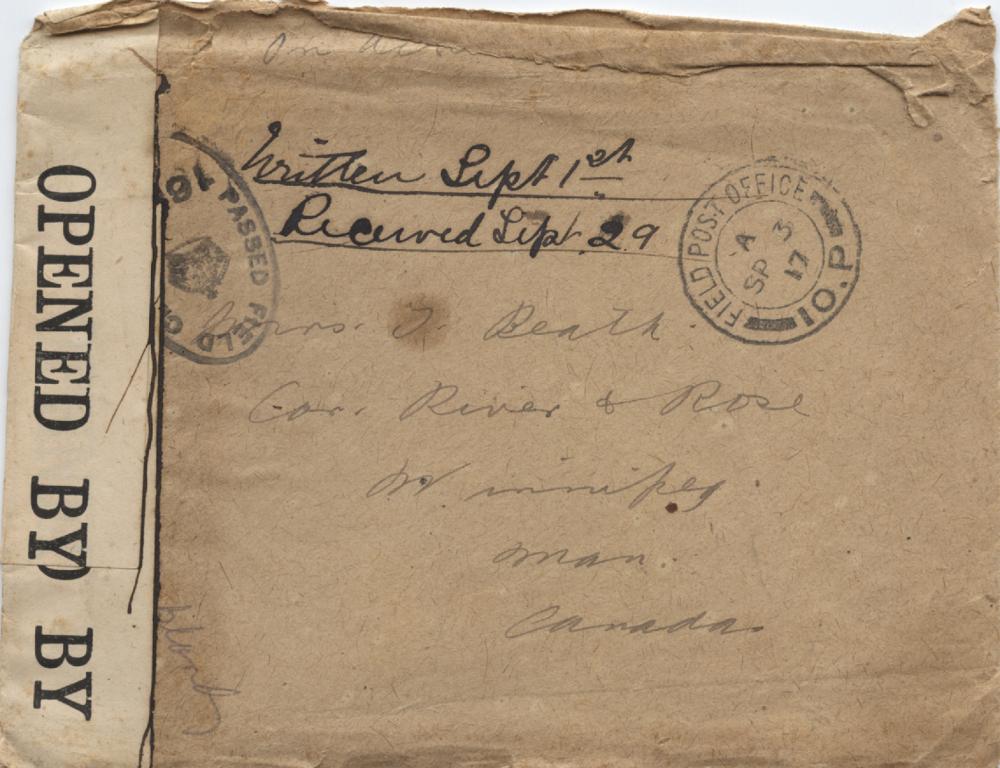 On
Written Sept 1st
Received Sept 29
Mrs. J. Beath.
Cor. River & Rose
Winnipeg.
Man.
Canada.
FIELD POST OFFICE
A
SP 3
17
10.P
PASSED FIELD
OPENED BY) BY